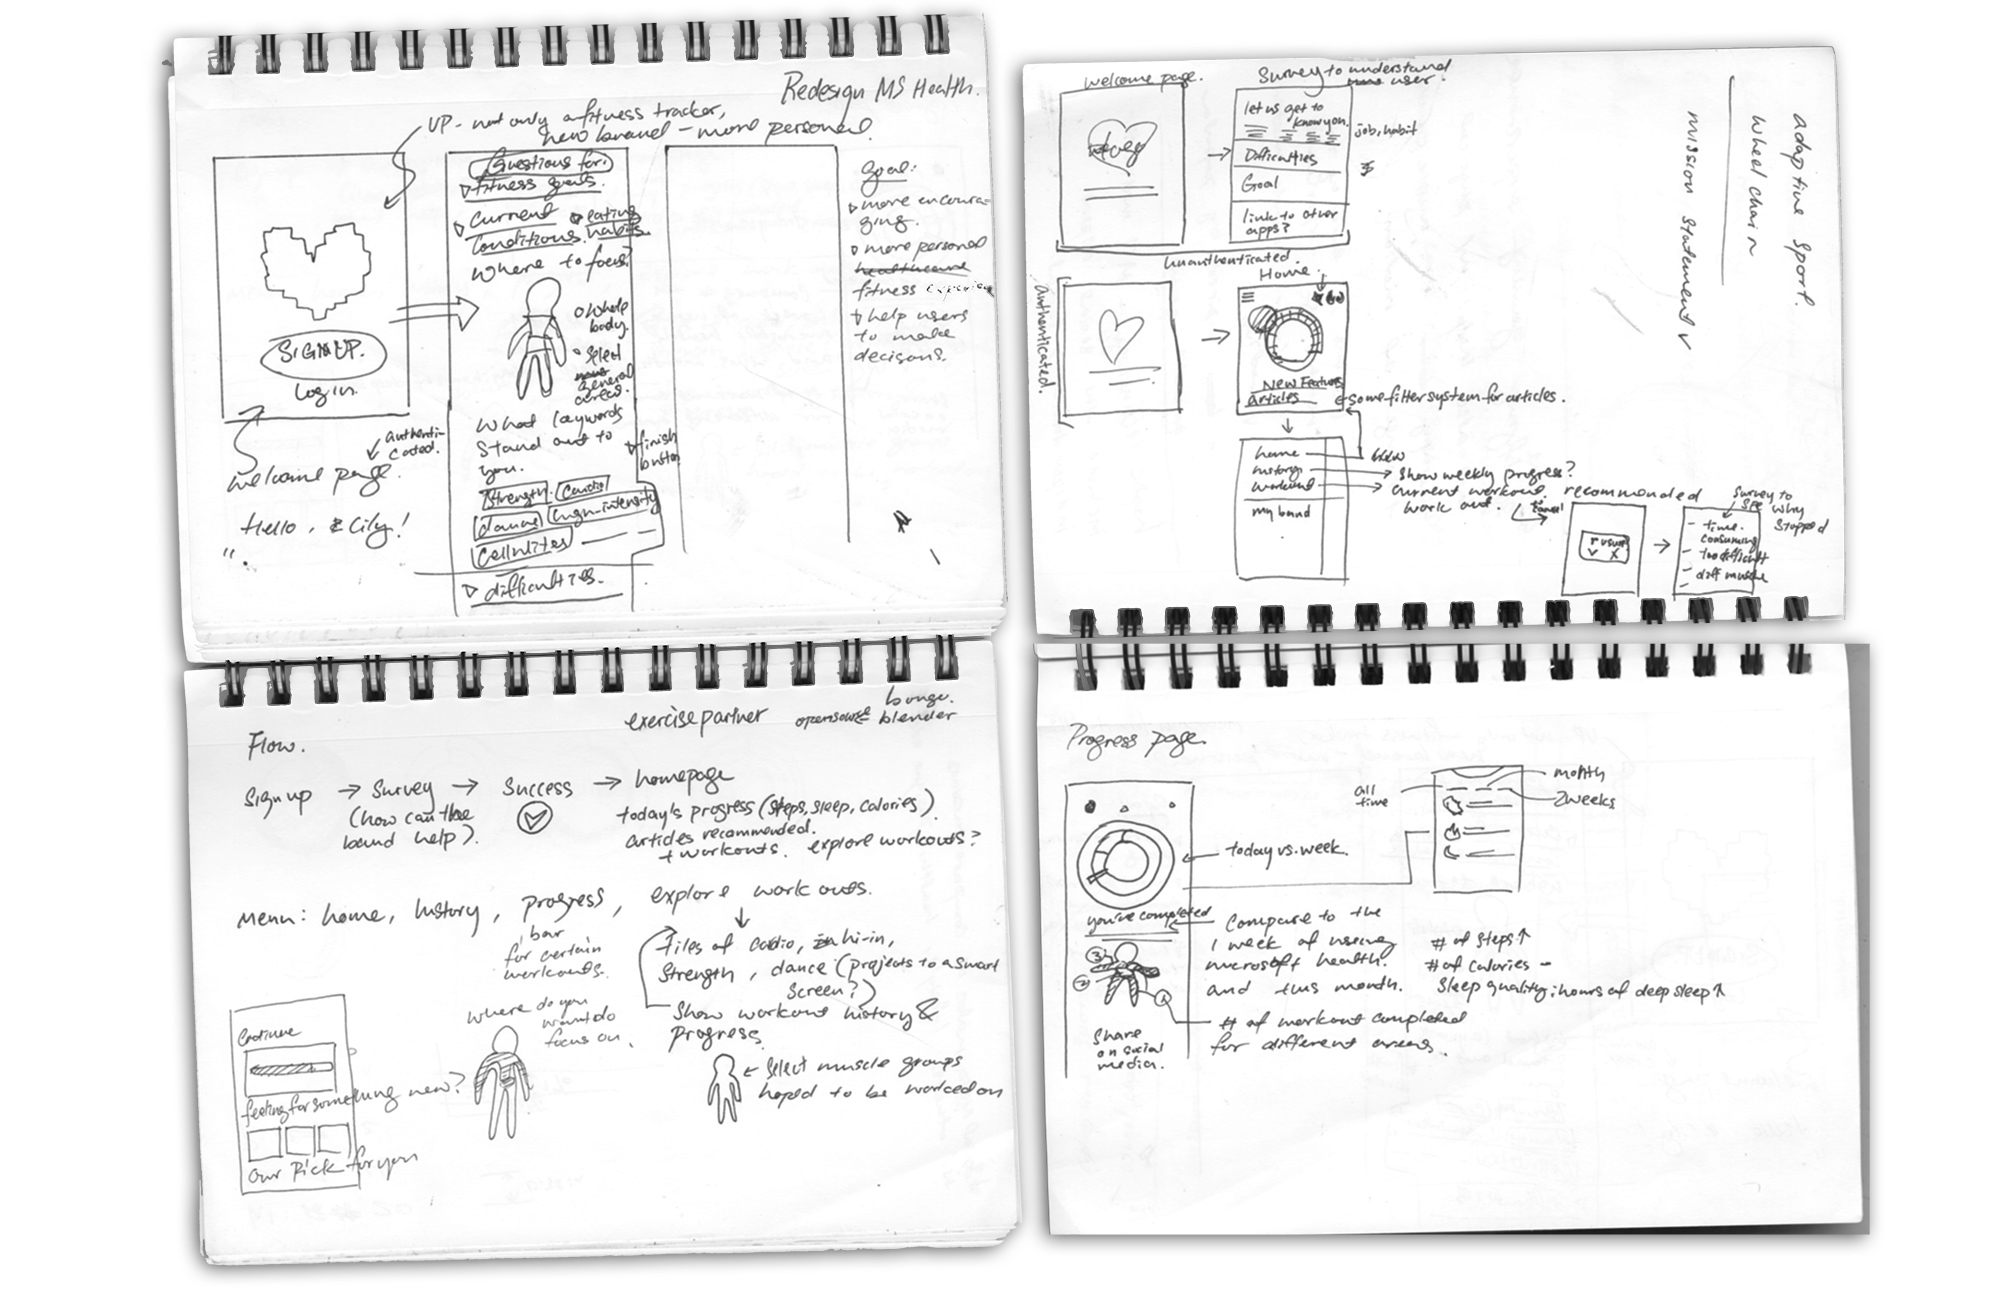 Redesign MS Health.
UP - not only a fitness tracker,
new brand - more personal.
SIGN UP.
Log in.
authenti-
cated.
welcome page.
Hello, Lily!
Questions for:
fitness goals.
current
conditions.
eating
habits.
Where to focus?
whole
body.
select
general
areas.
What keywords
stand out to
you.
finish
button
Strength
Cardio
dance
high-intensity
Cellulites
difficulties.
goal:
more encoura-
ging.
more personal
healthcare
fitness experience
help users
to make
decisons.
welcome page.
Survey to understand
user.
let us get to
know you.
job, habit
Difficulties
Goal
link to other
apps?
unauthenticated.
Authenticated.
Home.
New Features
articles
some filter system for articles.
home
history
workout
my band
show weekly progress?
current workout. recommended
work out.
cancel
survey to
see why
stopped
- time.
consuming
- too difficult
- diff muscle
adaptive sport.
wheel chair
mission statement
Flow.
exercise partner
opensource blender
Sign up → Survey → Success → homepage
(how can the
band help).
today's progress (steps, sleep, calories).
articles recommended.
+ workouts. explore workouts?
Menu: home, history, progress, explore work outs.
bar
for certain
workouts.
Tiles of cardio, hi-in,
strength, dance (projects to a smart
screen?)
Show workout history &
progress.
where do you
want do
focus on.
select muscle groups
hoped to be worked on
Continue
feeling for something new?
Our Pick for you
Progress page.
all
time
month
2weeks
today vs. week.
you've completed
Compare to the
1 week of using
microsoft health.
and this month.
# of steps ↑
# of calories -
Sleep quality: hours of deep sleep ↑
3
2
1
# of workout completed
for different areas.
Share
on social
media.